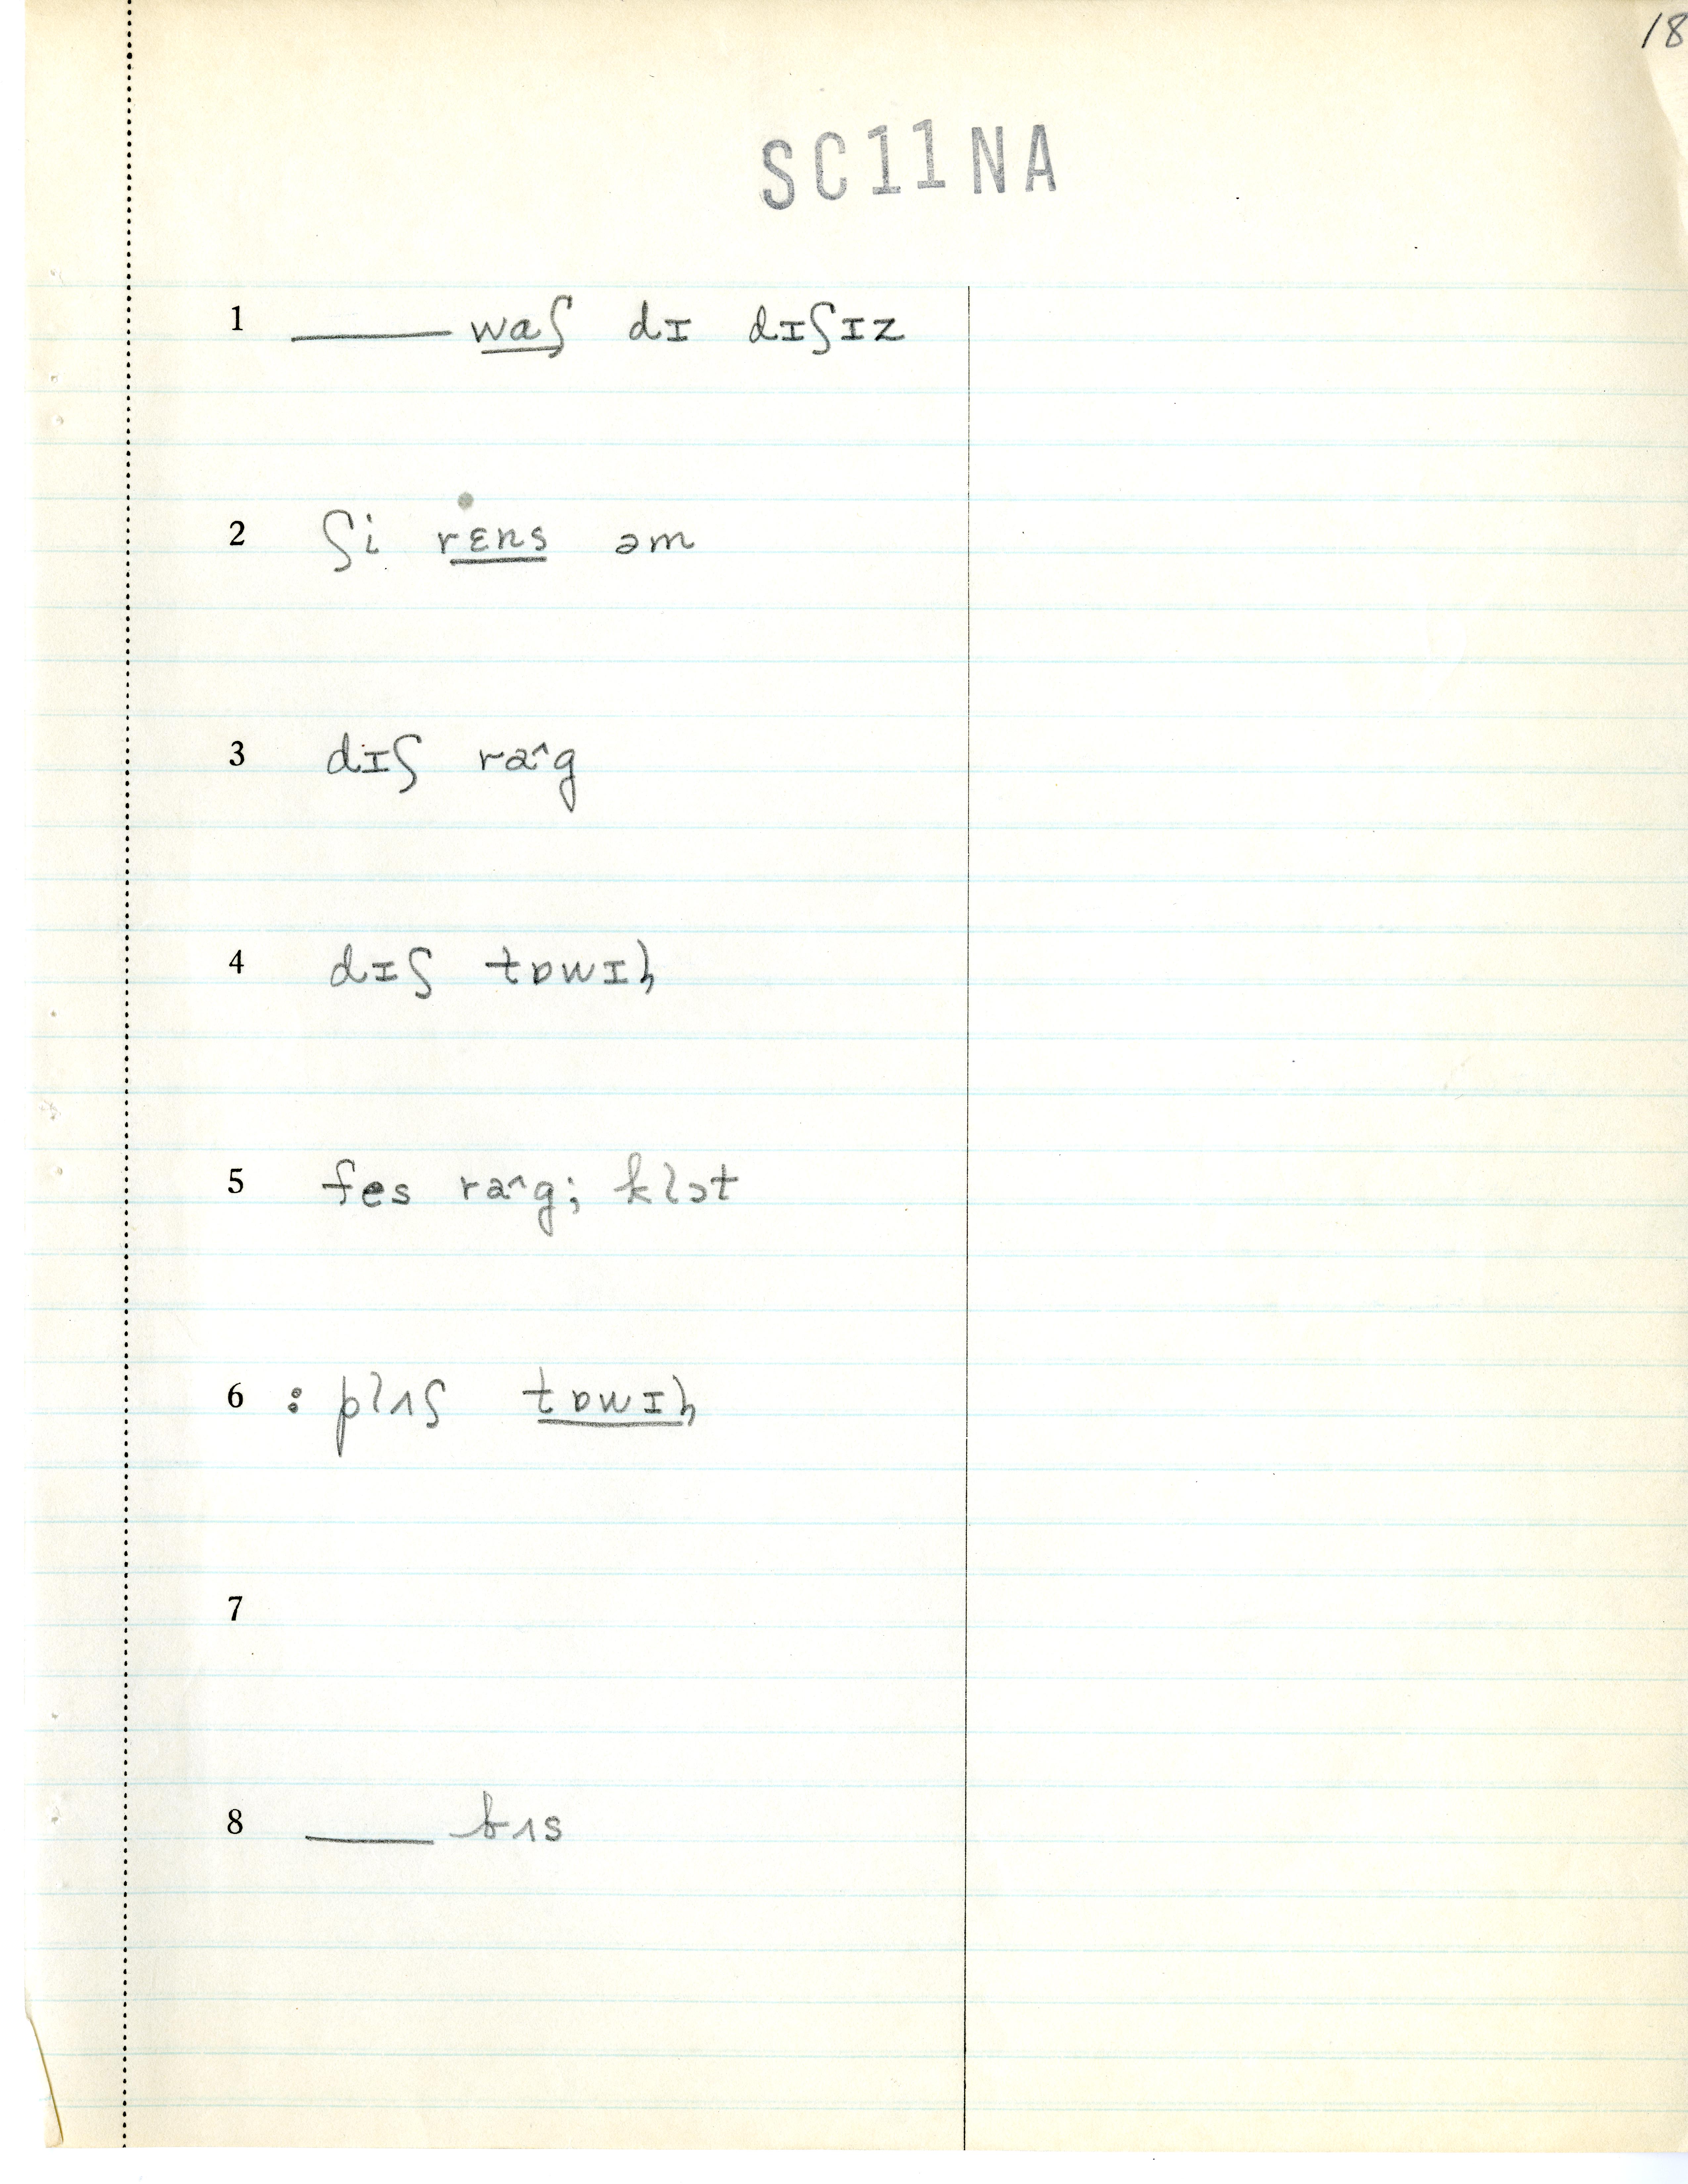 18
SC11NA
1 ____ waʃ dɪ dɪʃɪz
2 ʃi rɛns əm
3 dɪʃ raˆg
4 dɪʃ tɒwɪḷ
5 fes raˆg; klɔt
6 : plʌʃ tɒwɪḷ
7
8 ____